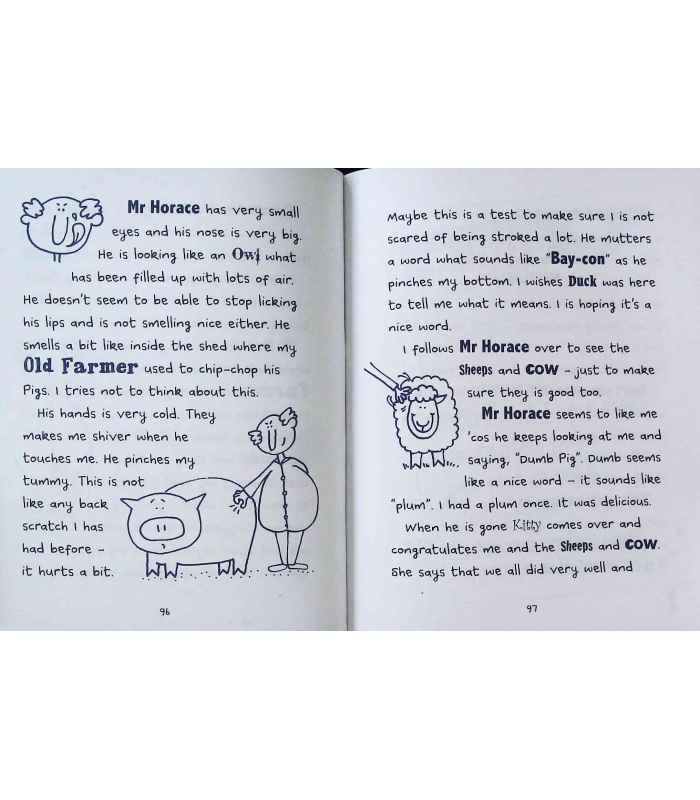 Mr Horace has very small
eyes and his nose is very big.
He is looking like an Owl what
has been filled up with lots of air.
He doesn't seem to be able to stop licking
his lips and is not smelling nice either. He
smells a bit like inside the shed where my
Old Farmer used to chip-chop his
Pigs. I tries not to think about this.
His hands is very cold. They
makes me shiver when he
touches me. He pinches my
tummy. This is not
like any back
scratch I has
had before –
it hurts a bit.
96
Maybe this is a test to make sure I is not
scared of being stroked a lot. He mutters
a word what sounds like "Bay-con" as he
pinches my bottom. I wishes Duck was here
to tell me what it means. I is hoping it's a
nice word.
I follows Mr Horace over to see the
Sheeps and COW – just to make
sure they is good too.
Mr Horace seems to like me
'cos he keeps looking at me and
saying, "Dumb Pig". Dumb seems
like a nice word – it sounds like
"plum". I had a plum once. It was delicious.
When he is gone Kitty comes over and
congratulates me and the Sheeps and COW.
She says that we all did very well and
97